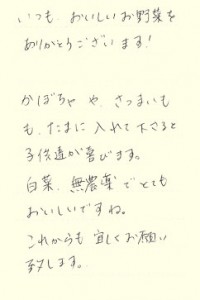 いつも、おいしいお野菜を
ありがとうございます!
かぼちゃ や、さつまいも
も、たまに 入れて下さると
子供達が喜びます。
白菜、無農薬でとても
おいしいですね。
これからも 宜しくお願い
致します。